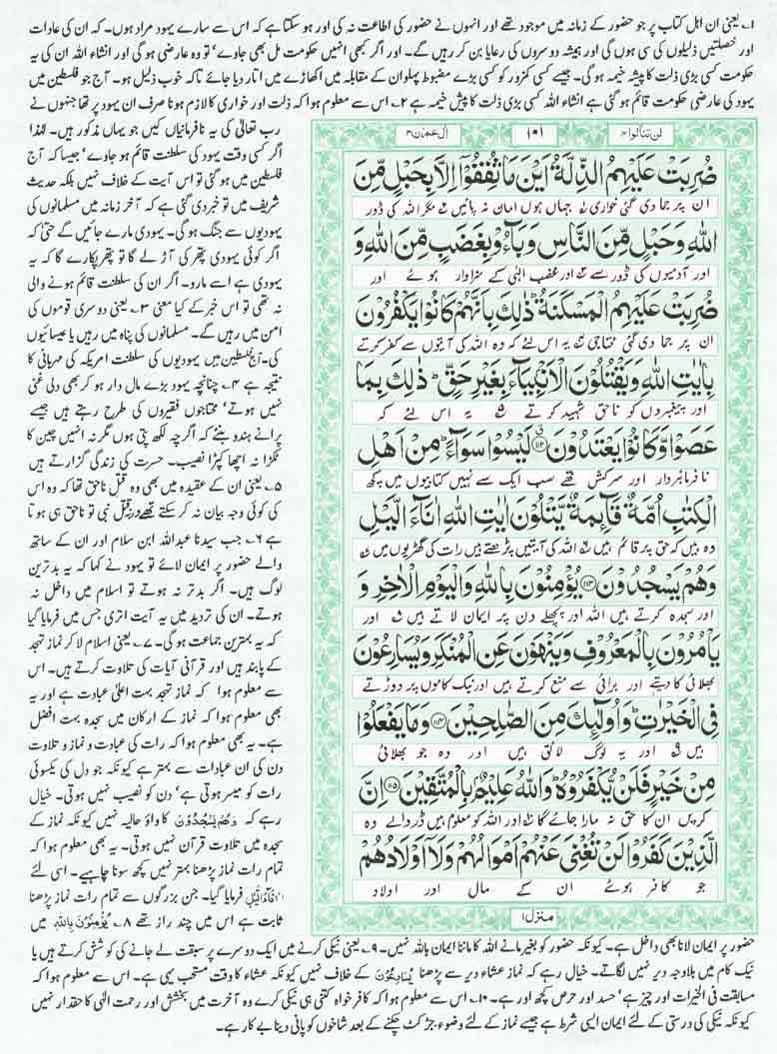 ۱۔ یعنی ان اہل کتاب پر جو حضور کے زمانہ میں موجود تھے اور انہوں نے حضور کی اطاعت نہ کی اور ہو سکتا ہے کہ اس سے سارے یہود مراد ہوں۔ کہ ان کی عادات
اور خصلتیں ذلیلوں کی سی ہوں گی اور ہمیشہ دوسروں کی رعایا بن کر رہیں گے۔ اور اگر کبھی انہیں حکومت مل بھی جاوے' تو وہ عارضی ہو گی اور انشاء اللہ ان کی یہ
حکومت کسی بڑی ذلت کا پیشہ خیمہ ہو گی۔ جیسے کسی کمزور کو کسی بڑے مضبوط پہلوان کے مقابلہ میں اکھاڑے میں اتار دیا جائے تاکہ خوب ذلیل ہو۔ آج جو فلسطین میں
یہود کی عارضی حکومت قائم ہو گئی ہے انشاء اللہ کسی بڑی ذلت کا پیش خیمہ ہے ۲۔ اس سے معلوم ہوا کہ ذلت اور خواری کا لازم ہونا صرف ان یہود پر تھا جنہوں نے
لن تنالوا۴ ۱۰۱ اٰل عمرٰن۳
ضُرِبَتْ عَلَیْهِمُ الذِّلَّةُ اَیْنَ مَا ثُقِفُوْۤا اِلَّا بِحَبْلٍ مِّنَ
ان پر جما دی گئی خواری جہاں ہوں امان نہ پائیں مگر اللہ کی ڈور
اللّٰهِ وَ حَبْلٍ مِّنَ النَّاسِ وَ بَآءُوْ بِغَضَبٍ مِّنَ اللّٰهِ وَ
اور آدمیوں کی ڈور سے اور غضب الٰہی کے سزاوار ہوئے اور
ضُرِبَتْ عَلَیْهِمُ الْمَسْكَنَةُؕ ذٰلِكَ بِاَنَّهُمْ كَانُوْا یَكْفُرُوْنَ
ان پر جما دی گئی محتاجی یہ اس لئے کہ وہ اللہ کی آیتوں سے کفر کرتے
بِاٰیٰتِ اللّٰهِ وَ یَقْتُلُوْنَ الْاَنْۢبِیَآءَ بِغَیْرِ حَقٍّؕ ذٰلِكَ بِمَا
اور پیغمبروں کو ناحق شہید کرتے یہ اس لئے کہ
عَصَوْا وَّ كَانُوْا یَعْتَدُوْنَ ۝۱۱۲ لَیْسُوْا سَوَآءًؕ مِنْ اَهْلِ
نافرمانبردار اور سرکش تھے سب ایک سے نہیں کتابیوں میں کچھ
الْكِتٰبِ اُمَّةٌ قَآىِٕمَةٌ یَّتْلُوْنَ اٰیٰتِ اللّٰهِ اٰنَآءَ الَّیْلِ
وہ ہیں کہ حق پر قائم ہیں اللہ کی آیتیں پڑھتے ہیں رات کی گھڑیوں میں
وَ هُمْ یَسْجُدُوْنَ ۝۱۱۳ یُؤْمِنُوْنَ بِاللّٰهِ وَ الْیَوْمِ الْاٰخِرِ وَ
اور سجدہ کرتے ہیں اللہ اور پچھلے دن پر ایمان لاتے ہیں اور
یَاْمُرُوْنَ بِالْمَعْرُوْفِ وَ یَنْهَوْنَ عَنِ الْمُنْكَرِ وَ یُسَارِعُوْنَ
بھلائی کا دیتے اور برائی سے منع کرتے ہیں اور نیک کاموں پر دوڑتے
فِی الْخَیْرٰتِؕ وَ اُولٰٓىِٕكَ مِنَ الصّٰلِحِیْنَ ۝۱۱۴ وَ مَا یَفْعَلُوْا
ہیں اور یہ لوگ لائق ہیں اور وہ جو بھلائی
مِنْ خَیْرٍ فَلَنْ یُّكْفَرُوْهُؕ وَ اللّٰهُ عَلِیْمٌۢ بِالْمُتَّقِیْنَ ۝۱۱۵ اِنَّ
کریں ان کا حق نہ مارا جائے گا اور اللہ کو معلوم ہیں ڈر والے وہ
الَّذِیْنَ كَفَرُوْا لَنْ تُغْنِیَ عَنْهُمْ اَمْوَالُهُمْ وَ لَاۤ اَوْلَادُهُمْ
جو کافر ہوئے ان کے مال اور اولاد
منزل۱
رب تعالیٰ کی یہ نافرمانیاں کیں جو یہاں مذکور ہیں۔ لہٰذا
اگر کسی وقت یہود کی سلطنت قائم ہو جاوے' جیسا کہ آج
فلسطین میں ہو گئی تو اس آیت کے خلاف نہیں بلکہ حدیث
شریف میں تو خبر دی گئی ہے کہ آخر زمانہ میں مسلمانوں کی
یہودیوں سے جنگ ہو گی۔ یہودی مارے جائیں گے حتیٰ کہ
اگر کوئی یہودی پتھر کی آڑ لے گا تو پتھر پکارے گا کہ یہ
یہودی ہے اسے مارو۔ اگر ان کی سلطنت قائم ہونے والی
نہ تھی تو اس خبر کے کیا معنی ۳۔ یعنی دوسری قوموں کی
امن میں رہیں گے۔ مسلمانوں کی پناہ میں رہیں یا عیسائیوں
کی۔ آج فلسطین میں یہودیوں کی سلطنت امریکہ کی مہربانی کا
نتیجہ ہے ۴۔ چنانچہ یہود بڑے مال دار ہو کر بھی دلی غنی
نہیں ہوتے' محتاجوں فقیروں کی طرح رہتے ہیں جیسے
پرانے ہندو بنئے کہ اگرچہ لکھ پتی ہوں مگر نہ انہیں چین کا
ٹکڑا نہ اچھا کپڑا نصیب۔ حسرت کی زندگی گزارتے ہیں
۵۔ یعنی ان کے عقیدہ میں بھی وہ قتل ناحق تھا کہ وہ اس
کی کوئی وجہ بیان نہ کر سکتے تھے ورنہ قتل نبی تو ناحق ہی ہوتا
ہے ۶۔ جب سیدنا عبداللہ ابن سلام اور ان کے ساتھ
والے حضور پر ایمان لائے تو یہود نے کہا کہ یہ بدترین
لوگ ہیں۔ اگر بدتر نہ ہوتے تو اسلام میں داخل نہ
ہوتے۔ ان کی تردید میں یہ آیت اتری جس میں فرمایا گیا
کہ یہ بہترین جماعت ہو گی۔ ۷۔ یعنی اسلام لا کر نماز تہجد
کے پابند ہیں اور قرآنی آیات کی تلاوت کرتے ہیں۔ اس
سے معلوم ہوا کہ نماز تہجد بہت اعلیٰ عبادت ہے اور یہ
بھی معلوم ہوا کہ نماز کے ارکان میں سجدہ بہت افضل
ہے۔ یہ بھی معلوم ہوا کہ رات کی عبادت و نماز و تلاوت
دن کی ان عبادات سے بہتر ہے کیونکہ جو دل کی یکسوئی
رات کو میسر ہوتی ہے' دن کو نصیب نہیں ہوتی۔ خیال
رہے کہ وَهُمْ يَسْجُدُوْنَ کا واؤ حالیہ نہیں کیونکہ نماز کے
سجدہ میں تلاوت قرآن نہیں ہوتی۔ یہ بھی معلوم ہوا کہ
تمام رات نماز پڑھنا بہتر نہیں کچھ سونا چاہیے۔ اسی لئے
اٰنَآءَ الَّيْلِ فرمایا گیا۔ جن بزرگوں سے تمام رات نماز پڑھنا
ثابت ہے اس میں چند راز تھے ۸۔ يُؤْمِنُوْنَ بِاللّٰهِ میں
حضور پر ایمان لانا بھی داخل ہے۔ کیونکہ حضور کو بغیر مانے اللہ کا ماننا ایمان باللہ نہیں۔ ۹۔ یعنی نیکی کرنے میں ایک دوسرے پر سبقت لے جانے کی کوشش کرتے ہیں یا
نیک کام میں بلاوجہ دیر نہیں لگاتے۔ خیال رہے کہ نماز عشاء دیر سے پڑھنا يُسَارِعُوْنَ کے خلاف نہیں کیونکہ عشاء کا وقت مستحب یہی ہے۔ اس سے معلوم ہوا کہ
مسابقت فی الخیرات اور چیز ہے' حسد اور حرص کچھ اور ہے۔ ۱۰۔ اس سے معلوم ہوا کہ کافر خواہ کتنی ہی نیکی کرے وہ آخرت میں بخشش اور رحمت الٰہی کا حقدار نہیں
کیونکہ نیکی کی درستی کے لئے ایمان ایسی شرط ہے جیسے نماز کے لئے وضوء' جڑ کٹ چکنے کے بعد شاخوں کو پانی دینا بے کار ہے۔